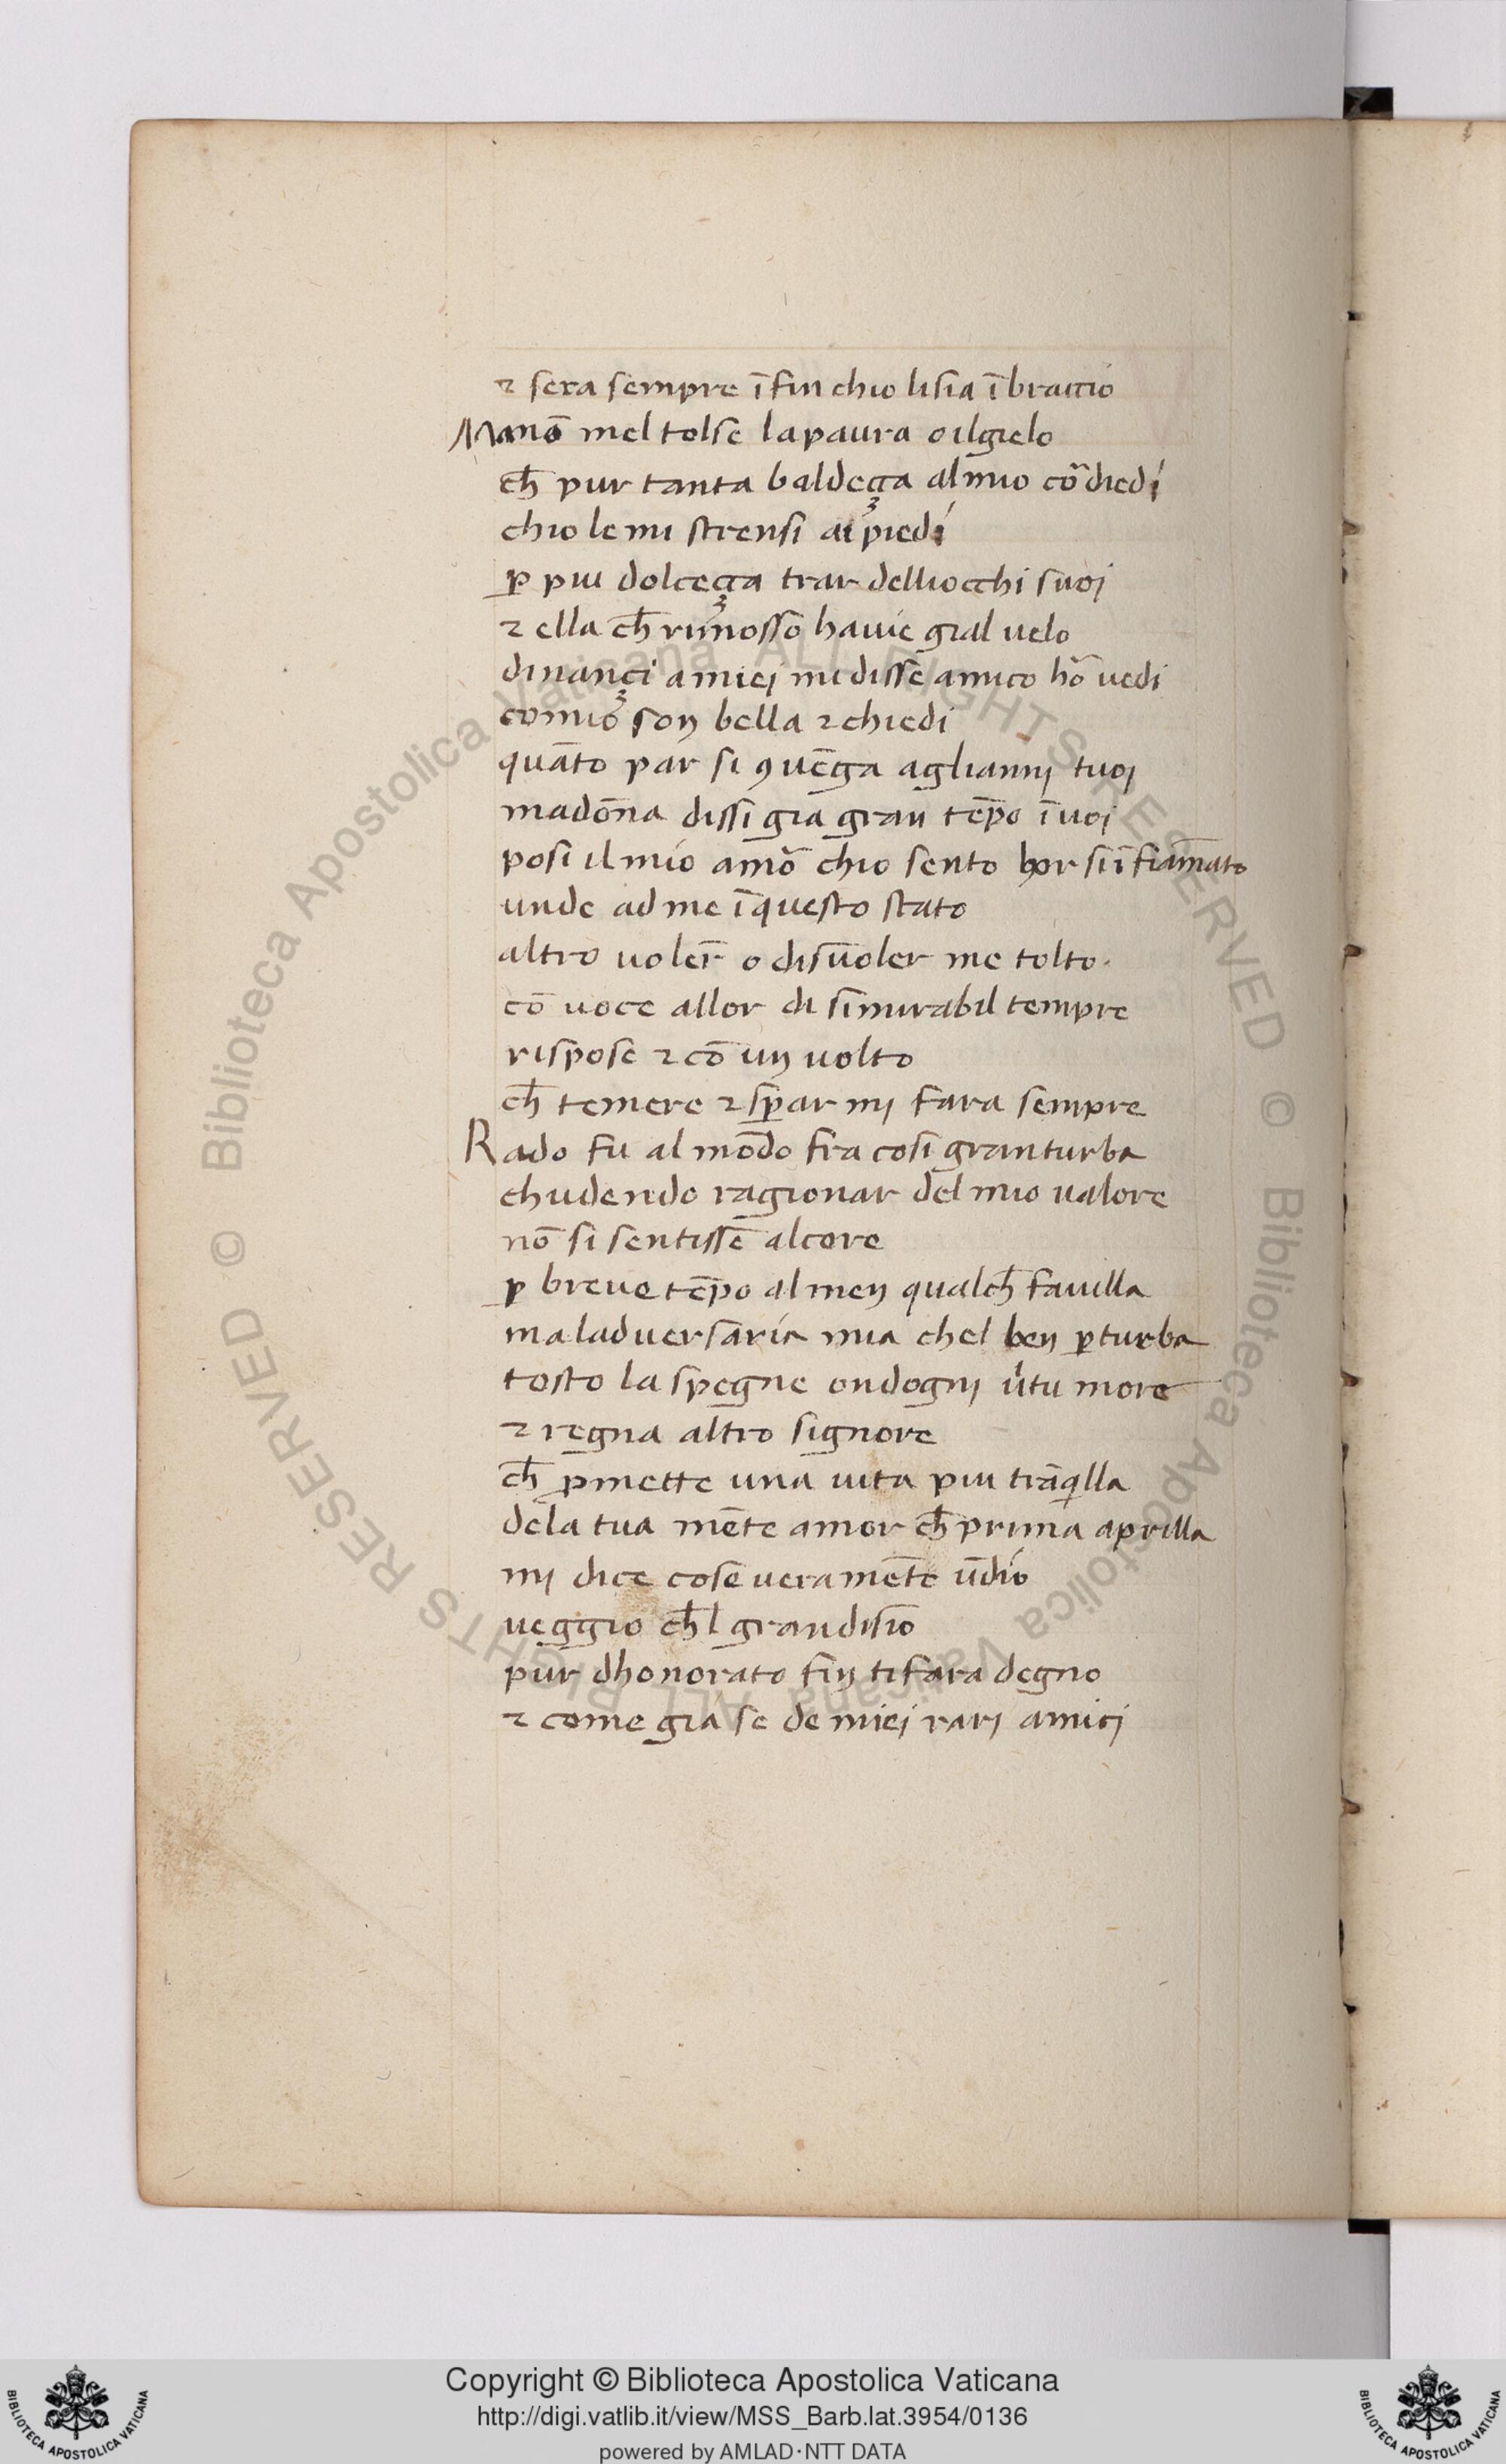 ⁊ sera sempre ī fin chio li sia ī braccio
Ma nō mel tolse la paura o il gielo
ch̄ pur tanta baldeça al mio cor̄ diedi
chio le mi strensi ai piedi
ꝑ piu dolceça trar delliocchi suoj
⁊ ella ch̄ rimosso havie gial uelo
dinançi a miej mi disse amico hor̄ uedi
comio son bella ⁊ chiedi
quāto par si ꝯuēga agliannj tuoj
madōna dissi gia gran tēpo ī uoj
posi il mio amor̄ chio sento hor si īfiāmato
unde ad me ī questo stato
altro uoler̄ o disuoler me tolto.
cō uoce allor di si mirabil tempre
rispose ⁊ cō un uolto
ch̄ temere ⁊ sꝑar mj fara sempre
Rado fu al mōdo fra cosi gran turba
chudendo ragionar del mio ualore
nō si sentisse al core
ꝑ breue tēpo almen qualch̄ fauilla
ma laduersaria mia chel ben ꝑturba
tosto la spegne ondognj u̓tu more
⁊ regna altro signore
ch̄ ꝓmette una uita piu trāq̓lla
dela tua mēte amor ch̄ prima aprilla
mj dice cose ueramēte ūdio
ueggio ch̄l gran disio
pur dhonorato fin ti fara degno
⁊ come gia se de miej rarj amicj
Copyright © Biblioteca Apostolica Vaticana
http://digi.vatlib.it/view/MSS_Barb.lat.3954/0136
powered by AMLAD·NTT DATA
© Biblioteca Apostolica Vaticana ALL RIGHTS RESERVED
© Biblioteca Apostolica Vaticana ALL RIGHTS RESERVED
BIBLIOTECA APOSTOLICA VATICANA
BIBLIOTECA APOSTOLICA VATICANA